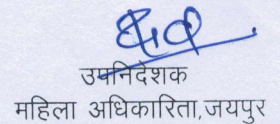 उपनिदेशक
महिला अधिकारिता,जयपुर